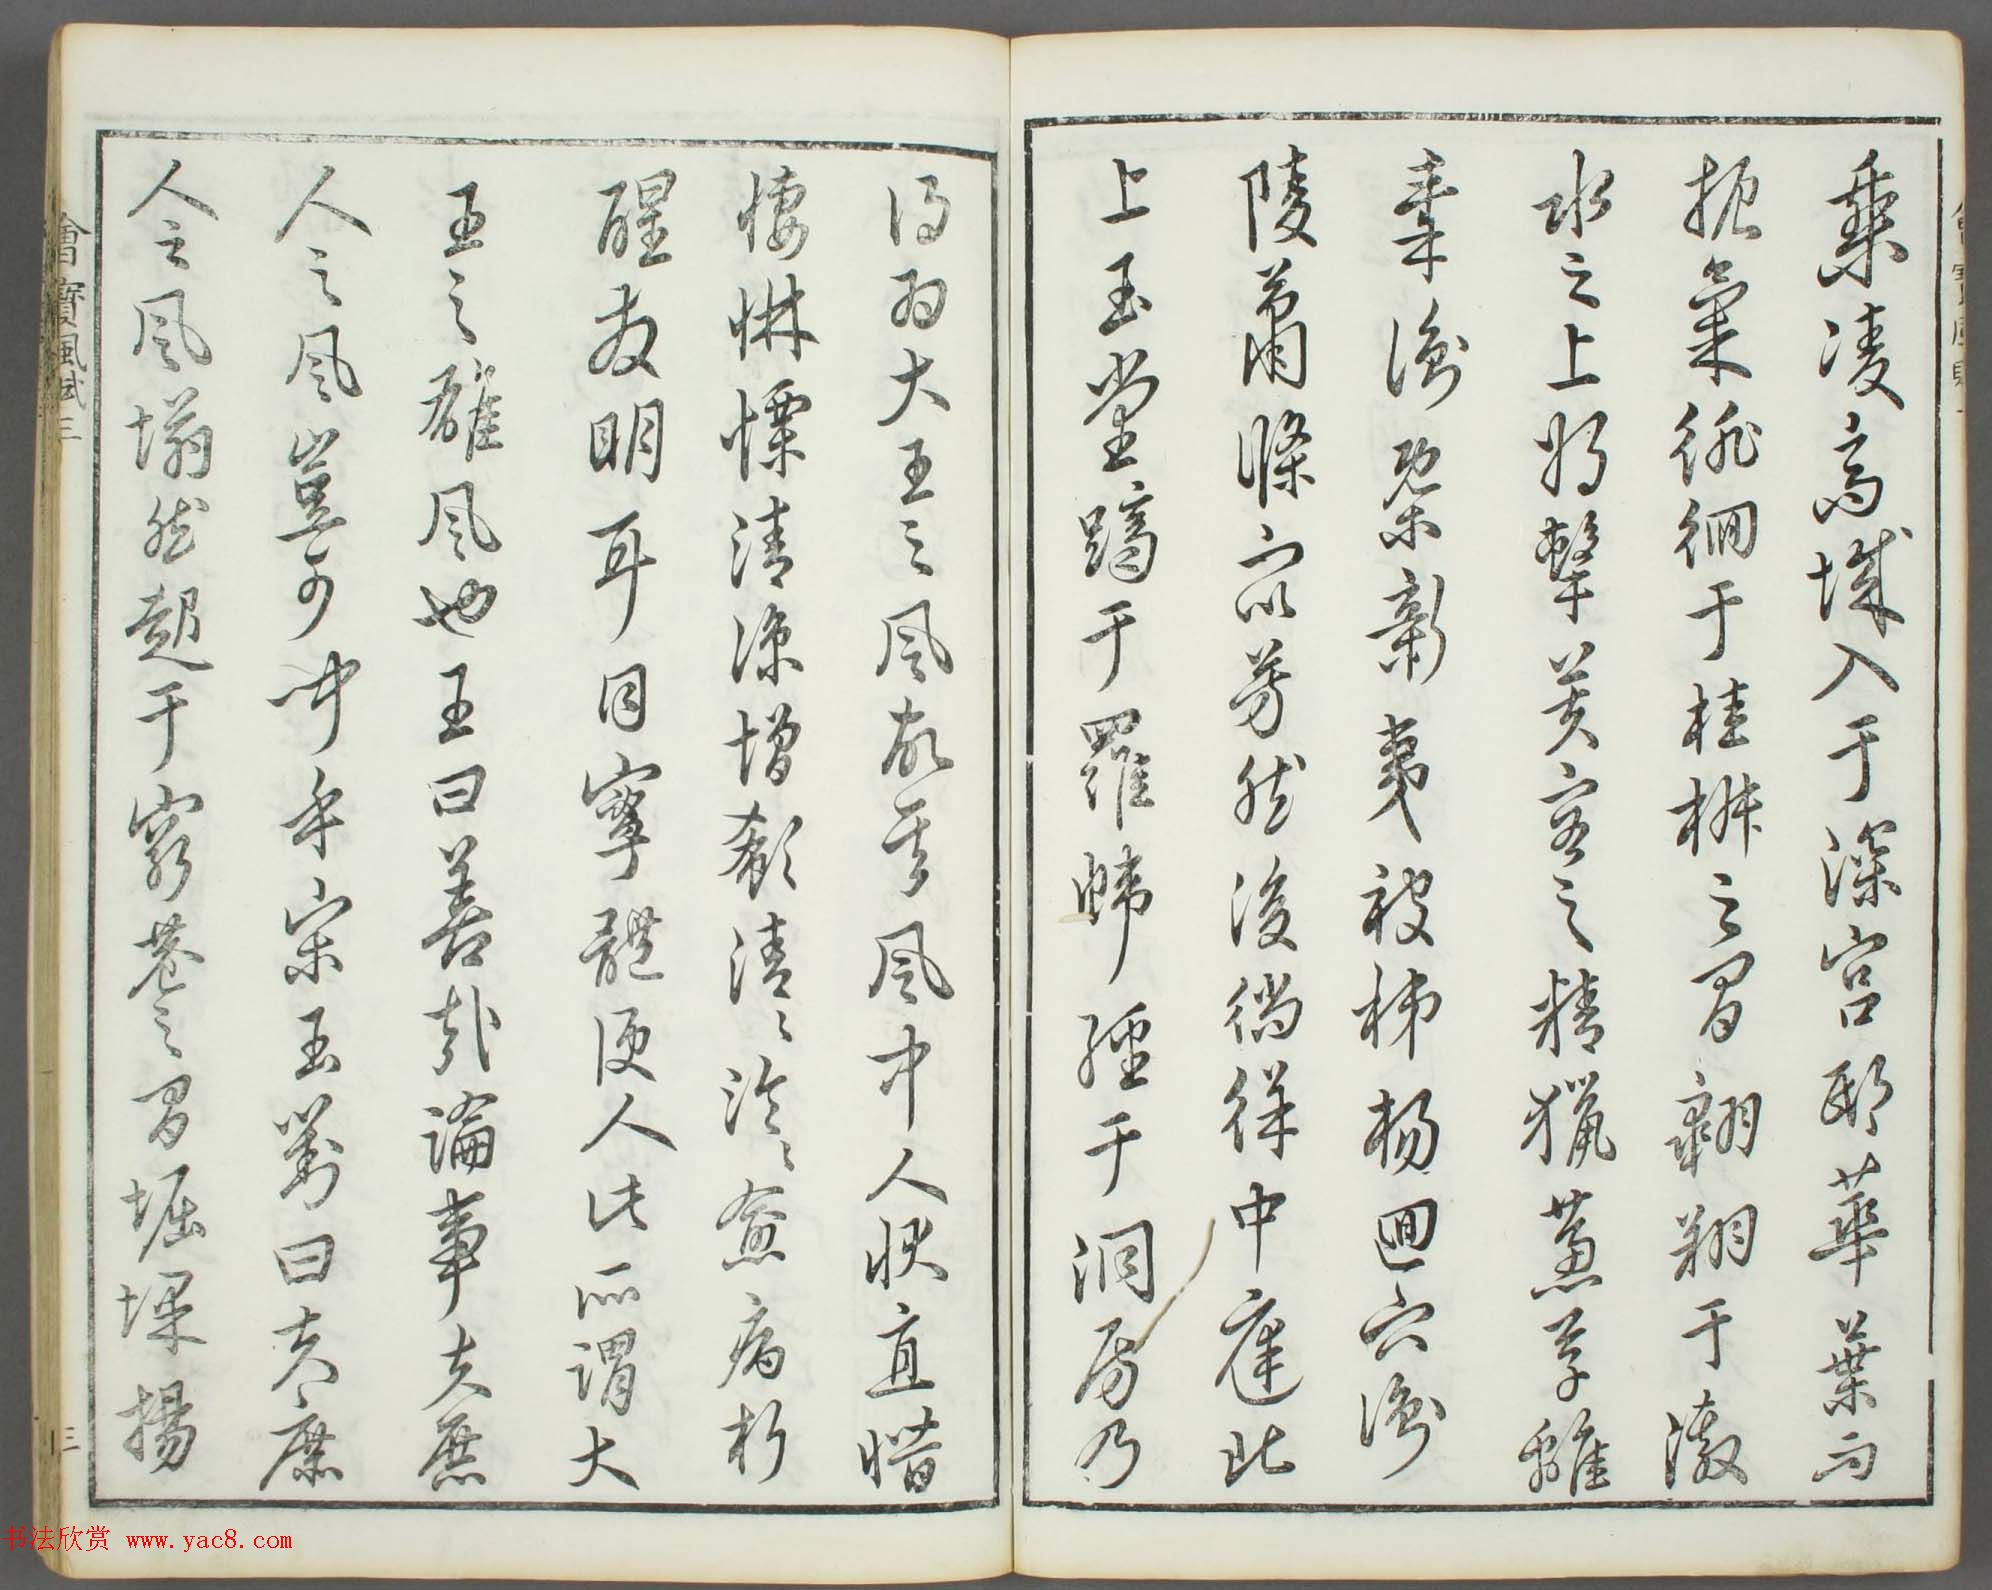 乘淩高城入于深宮邸華葉而
振氣徘徊于桂椒之間翱翔于激
水之上將擊芙容之精獵蕙草離
秦衡槩新夷被梯楊迴穴衝
陵蕭條眾芳然後徜徉中庭北
上玉堂躋于羅幃經于洞房乃
得為大王之風故其風中人狀直憯
悽惏慄清涼增欷清〻泠〻愈病析
酲發明耳目寧體便人此所謂大
王之雄風也王曰善哉論事夫庶
人之風豈可聞乎宋玉對曰夫庶
人之風塕然起于窮巷之間堀堁揚
會寶風賦三
三
书法欣赏 www.yac8.com